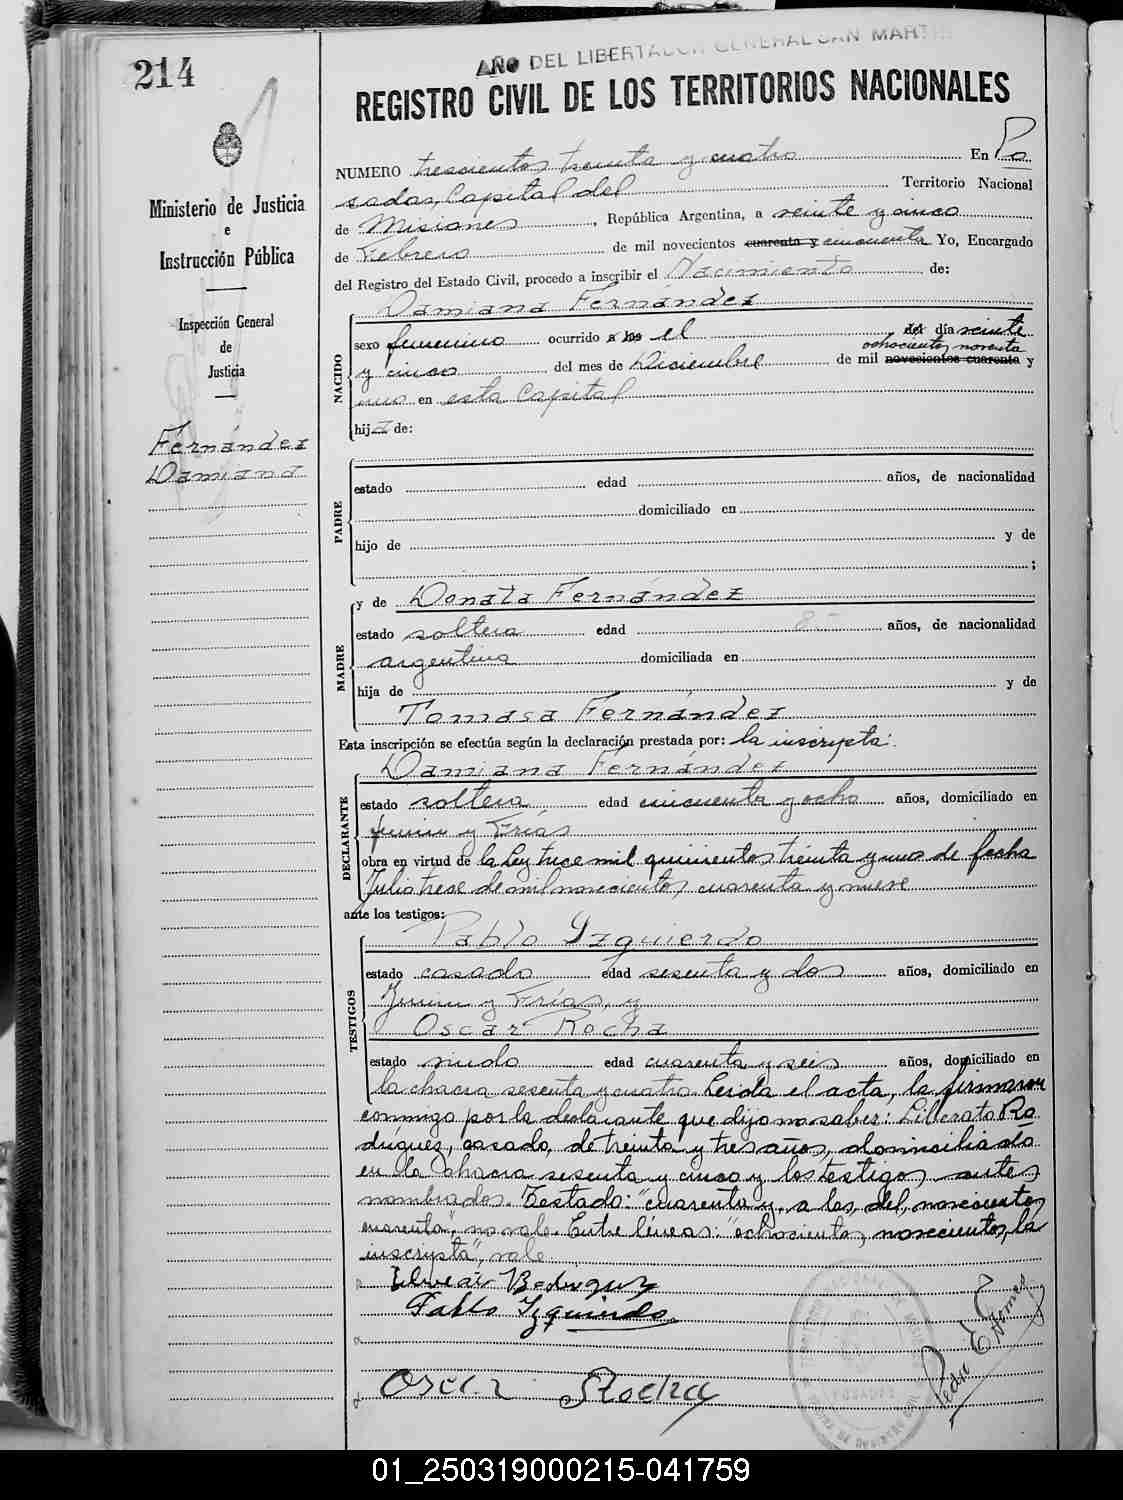 214
AÑO DEL LIBERTADOR GENERAL SAN MARTIN
REGISTRO CIVIL DE LOS TERRITORIOS NACIONALES
Ministerio de Justicia
e
Instrucción Pública
Inspección General
de
Justicia
Fernández
Damiana
NUMERO trescientos treinta y cuatro En Po
sadas, Capital del Territorio Nacional
de Misiones, República Argentina, a veinte y cinco
de Febrero de mil novecientos cuarenta y cincuenta Yo, Encargado
del Registro del Estado Civil, procedo a inscribir el Nacimiento de:
Damiana Fernández
NACIDO
sexo femenino ocurrido a las el del día veinte
ochocientos noventa
y cinco del mes de Diciembre de mil novecientos cuarenta y
uno en esta Capital
hija de:
PADRE
estado edad años, de nacionalidad
domiciliado en
hijo de y de
;
MADRE
y de Donata Fernández
estado soltera edad años, de nacionalidad
argentina domiciliada en
hija de y de
Tomasa Fernández
Esta inscripción se efectúa según la declaración prestada por: la inscripta:
DECLARANTE
Damiana Fernández
estado soltera edad cincuenta y ocho años, domiciliado en
Junin y Frías
obra en virtud de la Ley trece mil quinientos treinta y uno de fecha
Julio trece de mil novecientos cuarenta y nueve
ante los testigos:
TESTIGOS
Pablo Yzquierdo
estado casado edad sesenta y dos años, domiciliado en
Junin y Frías, y
Oscar Rocha
estado viudo edad cuarenta y seis años, domiciliado en
la chacra sesenta y cuatro. Leida el acta, la firmaron
conmigo por la declarante que dijo no saber: Liberato Ro
drigues, casado, de treinta y tres años, domiciliado
en la chacra sesenta y cinco y los testigos antes
nombrados. Testado: "cuarenta y, a las, del, novecientos
cuarenta", no vale. Entre líneas: "ochocientos, novecientos, la
inscripta", vale.
Pablo Yzquierdo
Oscar Rocha
01_250319000215-041759